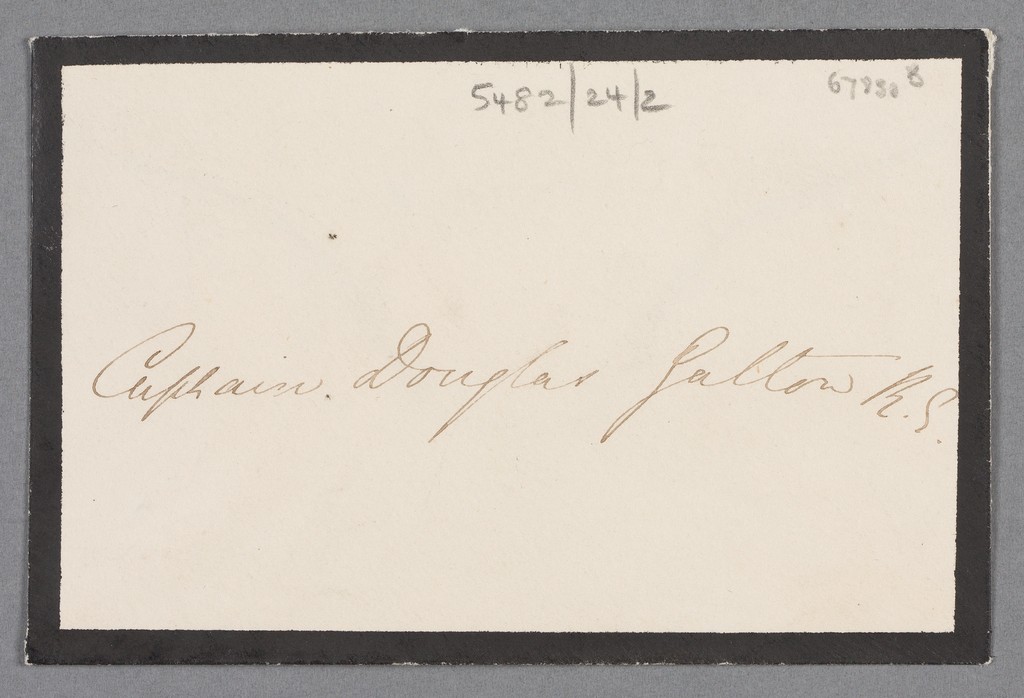 5482/24/2
67830 8
Captain Douglas Galton R.E.